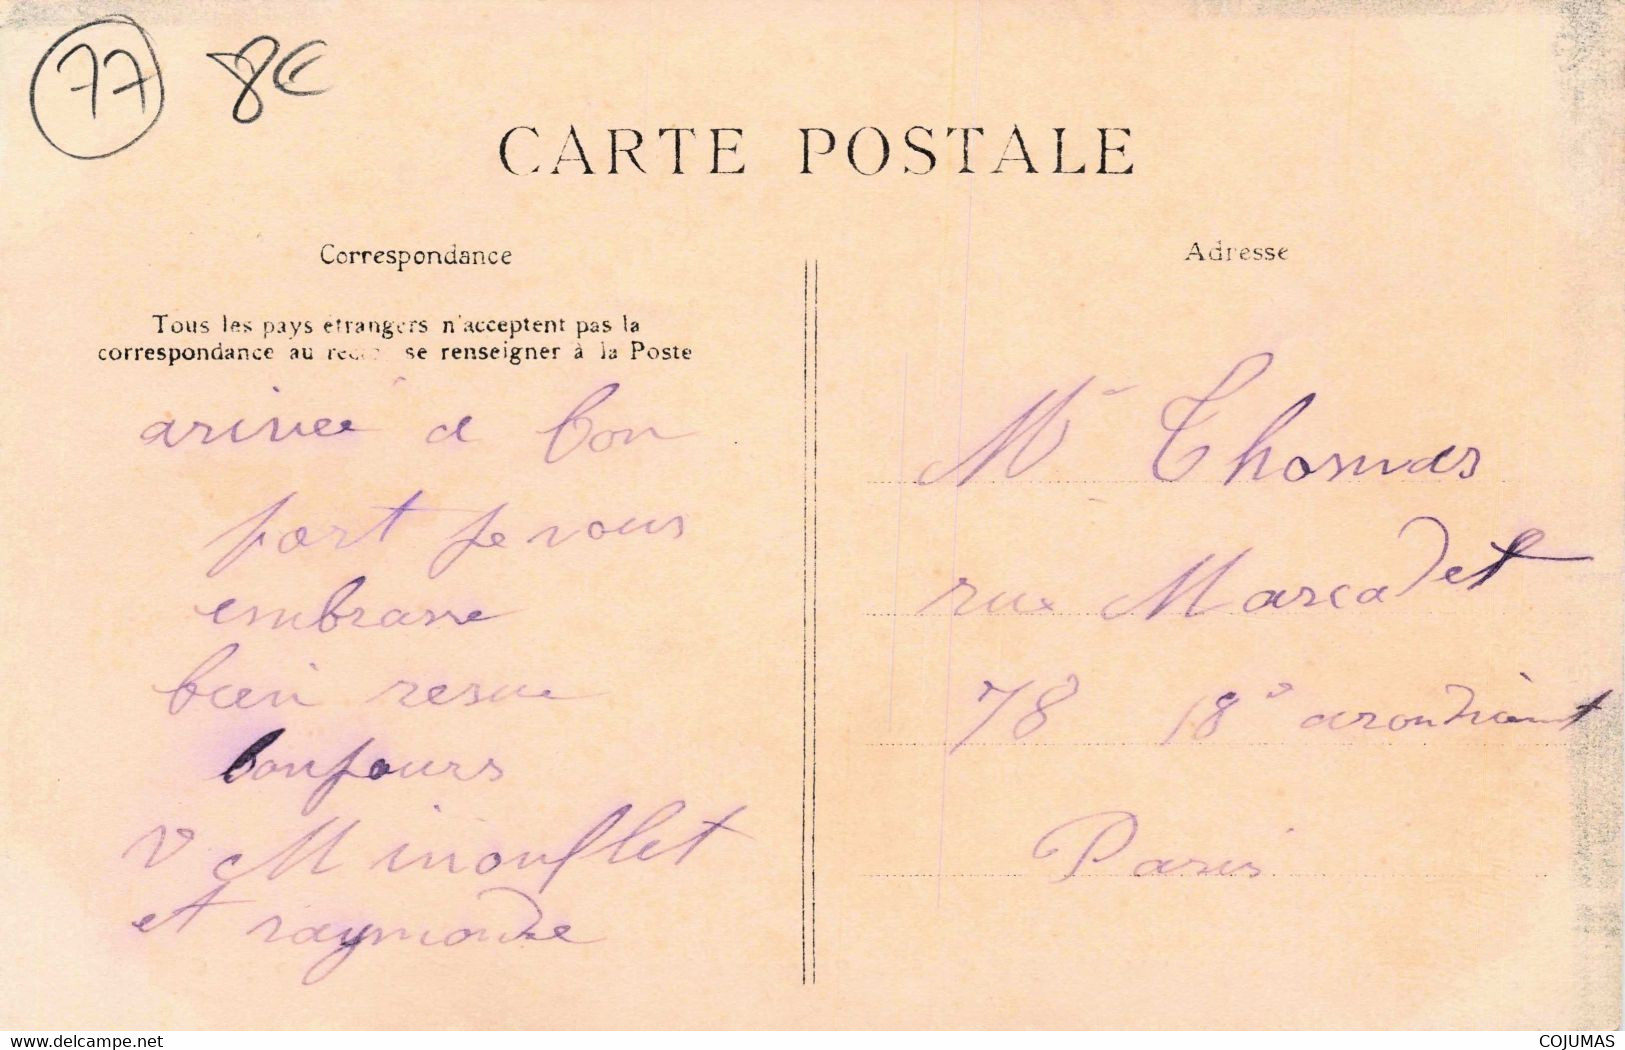 77 8€
CARTE POSTALE
Correspondance
Tous les pays étrangers n'acceptent pas la
correspondance au recto, se renseigner à la Poste
arivée a bon
port je vous
embrasse
bien
bonjours
V Minouflet
et raymonde
Adresse
Mr Thomas
rue Marcadet
78 18e
Paris
www.delcampe.net
COJUMAS